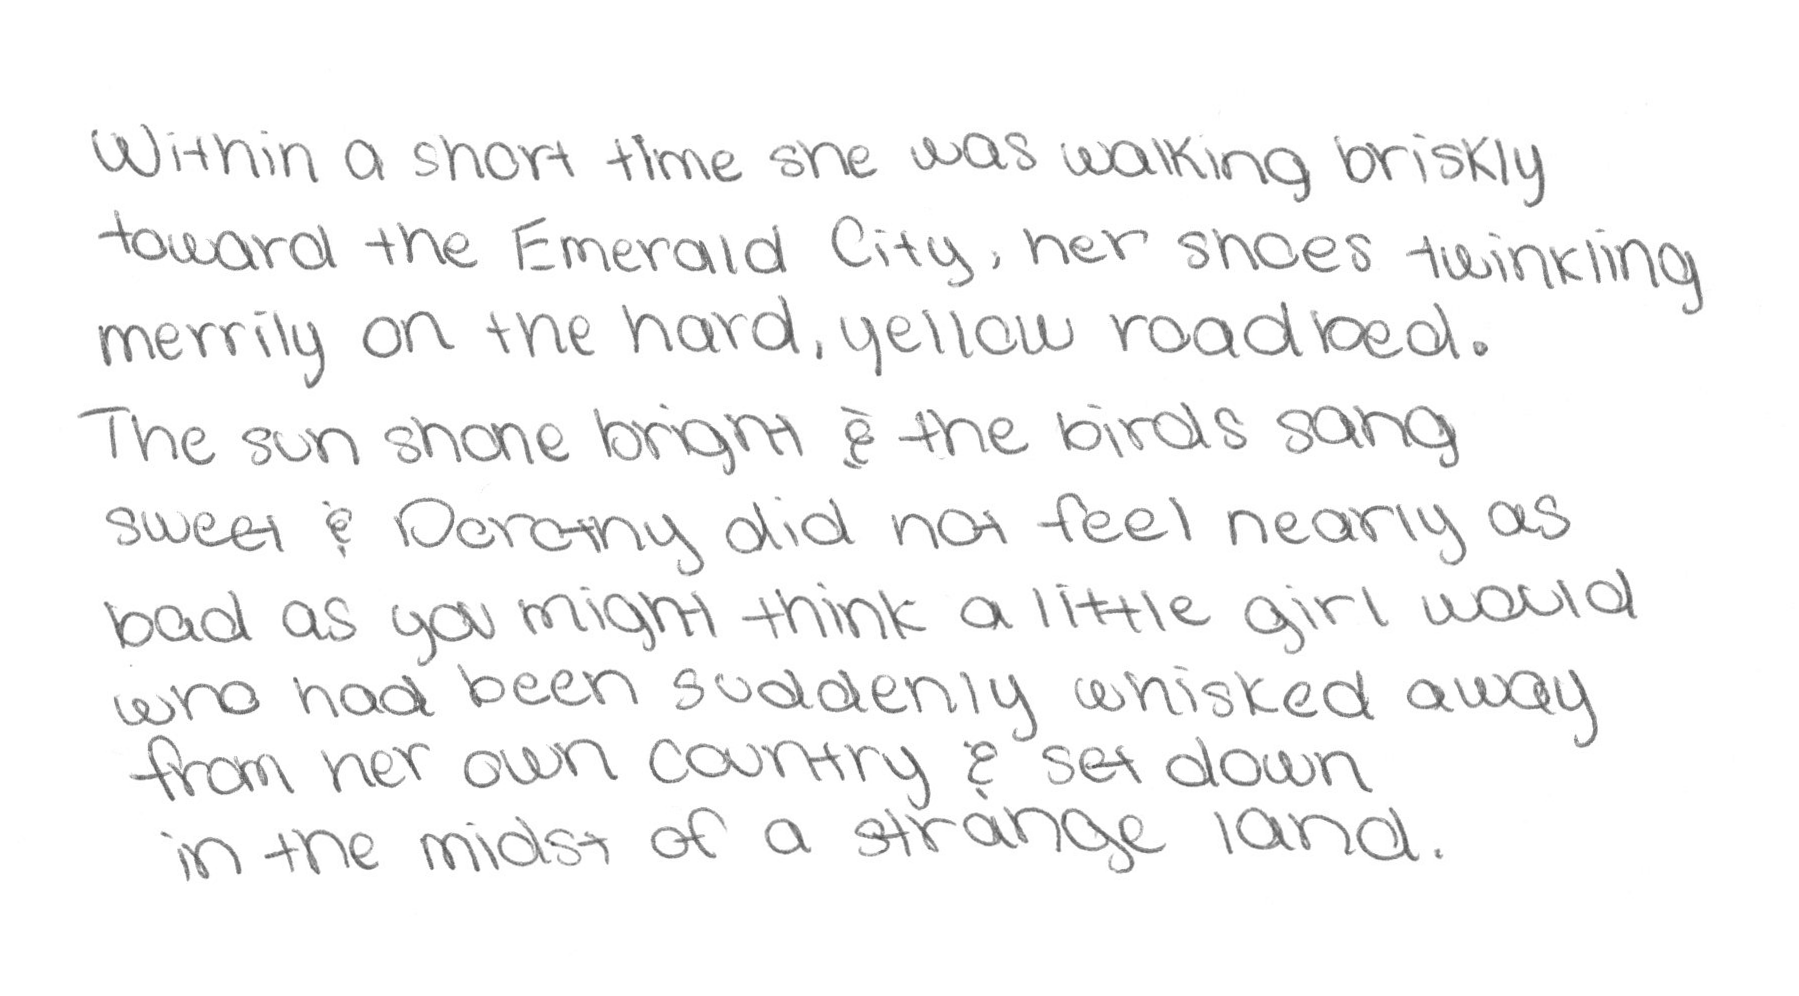 Within a short time she was walking briskly
toward the Emerald City, her shoes twinkling
merrily on the hard, yellow roadbed.
The sun shone bright & the birds sang
sweet & Dorothy did not feel nearly as
bad as you might think a little girl would
who had been suddenly whisked away
from her own country & set down
in the midst of a strange land.